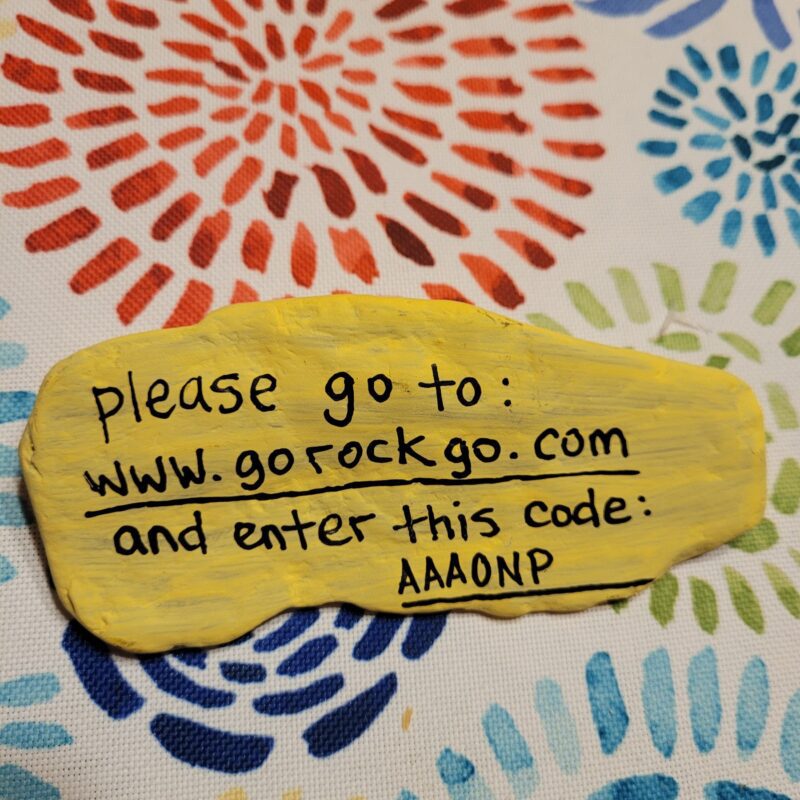 please go to:
www.gorockgo.com
and enter this code:
AAAONP